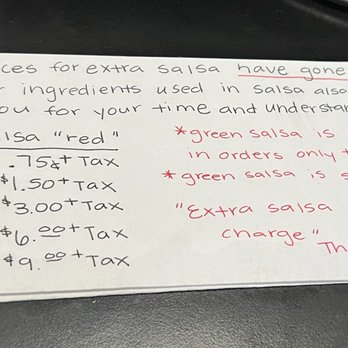 ces for extra salsa have gone
ingredients used in salsa also
ou for your time and understan
lsa "red"
.75¢ + Tax
$1.50 + Tax
$3.00 + Tax
$6.00 + Tax
$9.00 + Tax
*green salsa is
in orders only
*green salsa is s
"Extra salsa
charge"
Th